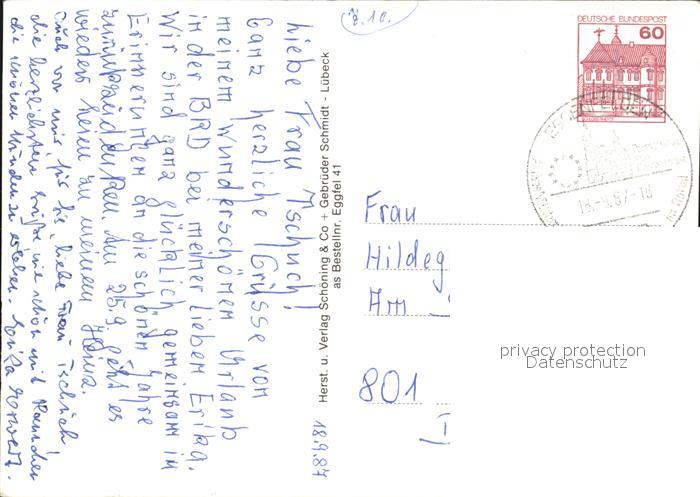 8.10.
DEUTSCHE BUNDESPOST
60
18.-9.87-18
Liebe Frau Tschuch!
Ganz herzliche Grüsse von
meinem wunderschönen Urlaub
in der BRD bei meiner lieben Erika.
Wir sind ganz glücklich gemeinsam in
Erinnerungen an die schönen Jahre
zurückzudenken. Am 25.9. geht es
wieder heim zu meinem Heinz.
Auch von mir, für Sie, liebe Frau Tschuch
die herzlichsten Grüße, wie schön mit
die schönen Stunden zu erleben. Erika
18.9.87
Herst. u. Verlag Schöning & Co + Gebrüder Schmidt - Lübeck
as Bestellnr. Eggfel 41
Frau
Hildeg
Am
801
privacy protection
Datenschutz